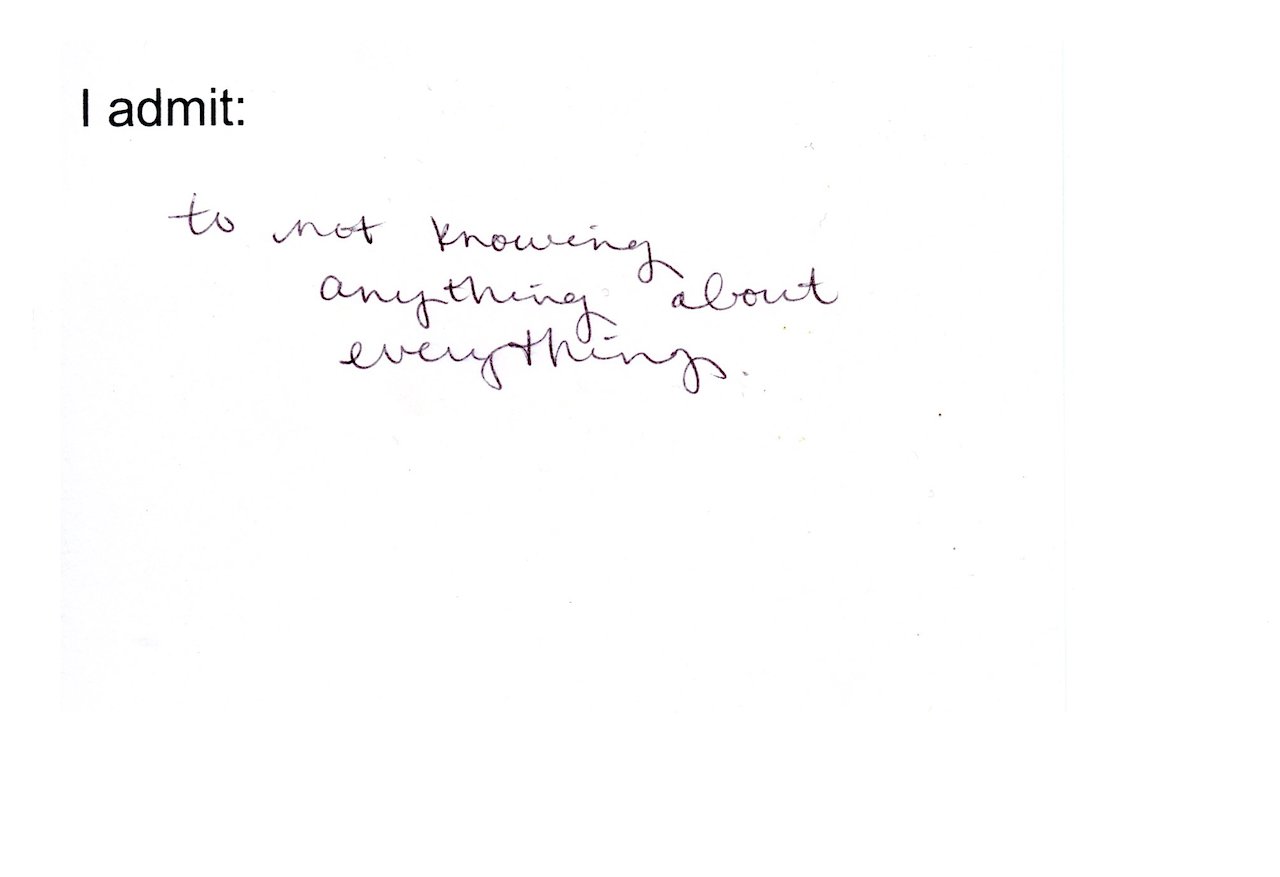 I admit:
to not knowing
anything about
everything.